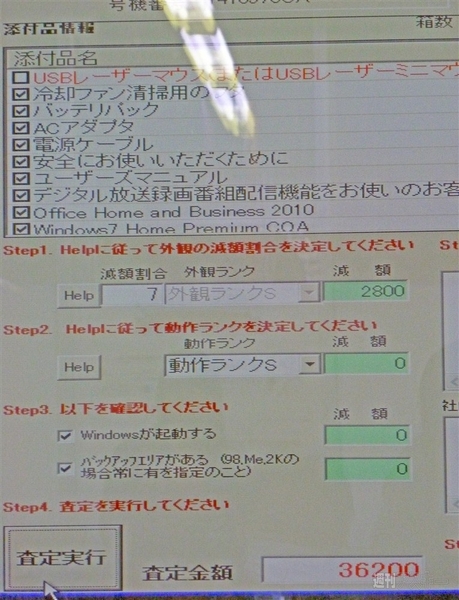 号機番
添付品情報 箱数
添付品名
USBレーザーマウスまたはUSBレーザーミニマウ
冷却ファン清掃用の
バッテリパック
ACアダプタ
電源ケーブル
安全にお使いいただくために
ユーザーズマニュアル
デジタル放送録画番組配信機能をお使いのお客
Office Home and Business 2010
Windows7 Home Premium COA
Step1. Helpに従って外観の減額割合を決定してください St
減額割合 外観ランク 減 額
Help 7 外観ランクS 2800
Step2. Helpに従って動作ランクを決定してください
動作ランク 減 額
Help 動作ランクS 0
Step3. 以下を確認してください 社
減 額
Windowsが起動する 0
バックアップエリアがある (98,Me,2Kの
場合常に有を指定のこと) 0
Step4. 査定を実行してください
St
査定実行 査定金額 36200
週刊